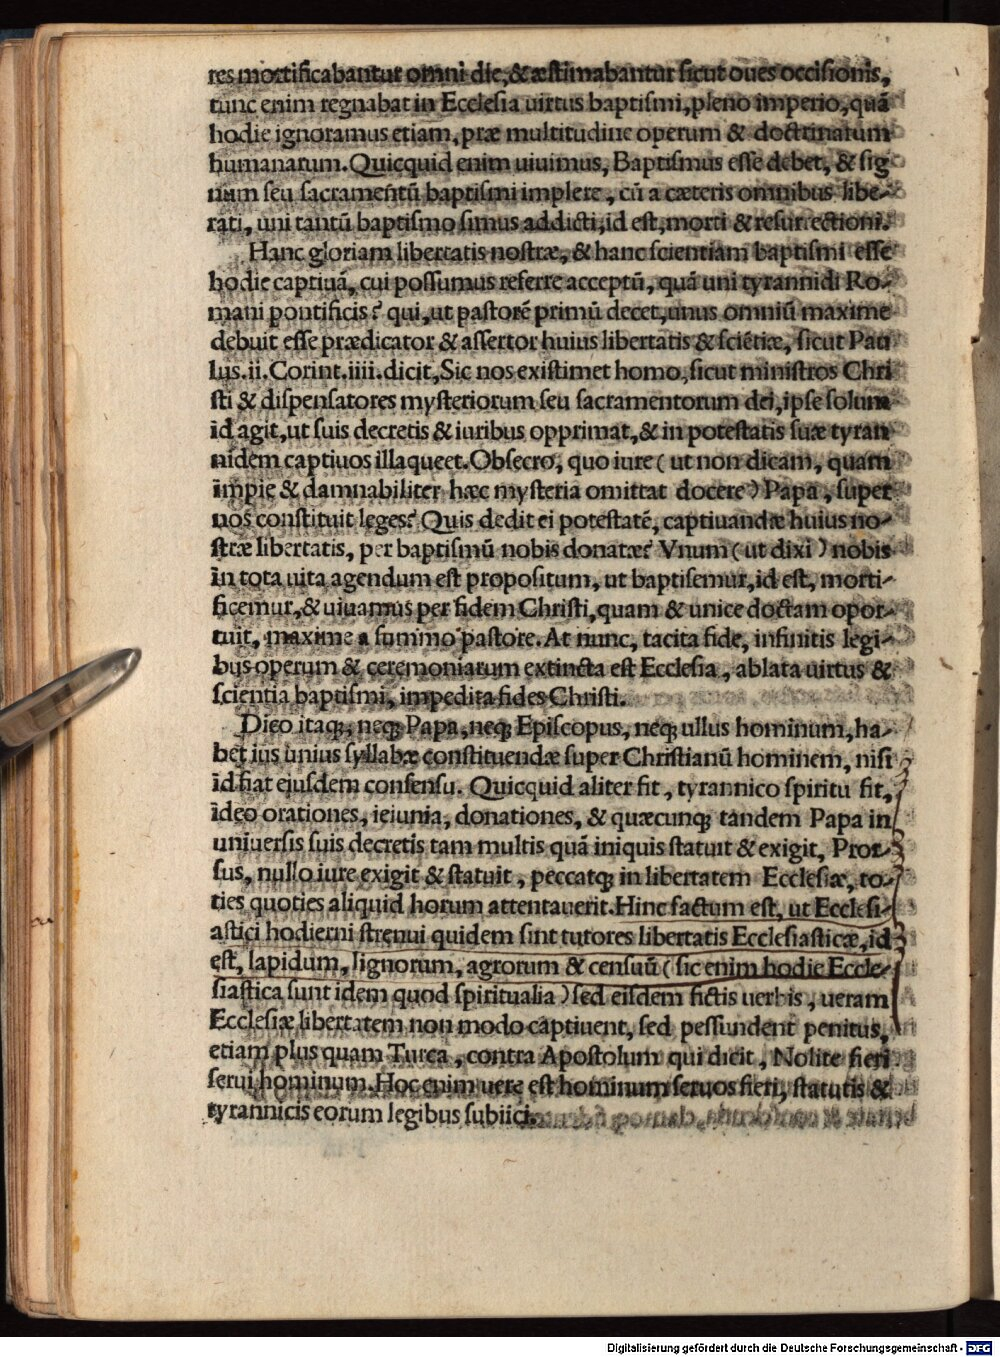 res mortificabantur omni die, & æstimabantur sicut oues occisionis,
tunc enim regnabat in Ecclesia uirtus baptismi, pleno imperio, quã
hodie ignoramus etiam, præ multitudine operum & doctrinarum
humanarum. Quicquid enim uiuimus, Baptismus esse debet, & sig
num seu sacramentũ baptismi implere, cũ a cæteris omnibus libe-
rati, uni tantũ baptismo simus addicti, id est, morti & resurrectioni.
Hanc gloriam libertatis nostræ, & hanc scientiam baptismi esse
hodie captiuã, cui possumus referre acceptũ, quã uni tyrannidi Ro-
mani pontificis? qui, ut pastorẽ primũ decet, unus omniũ maxime
debuit esse prædicator & assertor huius libertatis & sciẽtiæ, sicut Pau
lus .ii. Corint. iiii. dicit, Sic nos existimet homo, sicut ministros Chri
sti & dispensatores mysteriorum seu sacramentorum dei, ipse solum
id agit, ut suis decretis & iuribus opprimat, & in potestatis suæ tyran
nidem captiuos illaqueet. Obsecro, quo iure (ut non dicam, quam
impie & damnabiliter hæc mysteria omittat docere) Papa, super
nos constituit leges? Quis dedit ei potestatẽ, captiuandæ huius no-
stræ libertatis, per baptismũ nobis donatæ? Vnum (ut dixi) nobis
in tota uita agendum est propositum, ut baptisemur, id est, morti-
ficemur, & uiuamus per fidem Christi, quam & unice doctam opor
tuit, maxime a summo pastore. At nunc, tacita fide, infinitis legi-
bus operum & ceremoniarum extincta est Ecclesia, ablata uirtus &
scientia baptismi, impedita fides Christi.
Dico itaq;, neq; Papa, neq; Episcopus, neq; ullus hominum, ha-
bet ius unius syllabæ constituendæ super Christianũ hominem, nisi
id fiat eiusdem consensu. Quicquid aliter fit, tyrannico spiritu fit,
ideo orationes, ieiunia, donationes, & quæcunq; tandem Papa in
uniuersis suis decretis tam multis quã iniquis statuit & exigit, Pror-
sus, nullo iure exigit & statuit, peccatq; in libertatem Ecclesiæ, to-
ties quoties aliquid horum attentauerit. Hinc factum est, ut Ecclesi-
astici hodierni strenui quidem sint tutores libertatis Ecclesiasticæ, id
est, lapidum, lignorum, agrorum & censuũ (sic enim hodie Eccle-
siastica sunt idem quod spiritualia) sed eisdem fictis uerbis, ueram
Ecclesiæ libertatem non modo captiuent, sed pessundent penitus,
etiam plus quam Turca, contra Apostolum qui dicit, Nolite fieri
serui hominum. Hoc enim uere est hominum seruos fieri, statutis &
tyrannicis eorum legibus subiici.
Digitalisierung gefördert durch die Deutsche Forschungsgemeinschaft - DFG